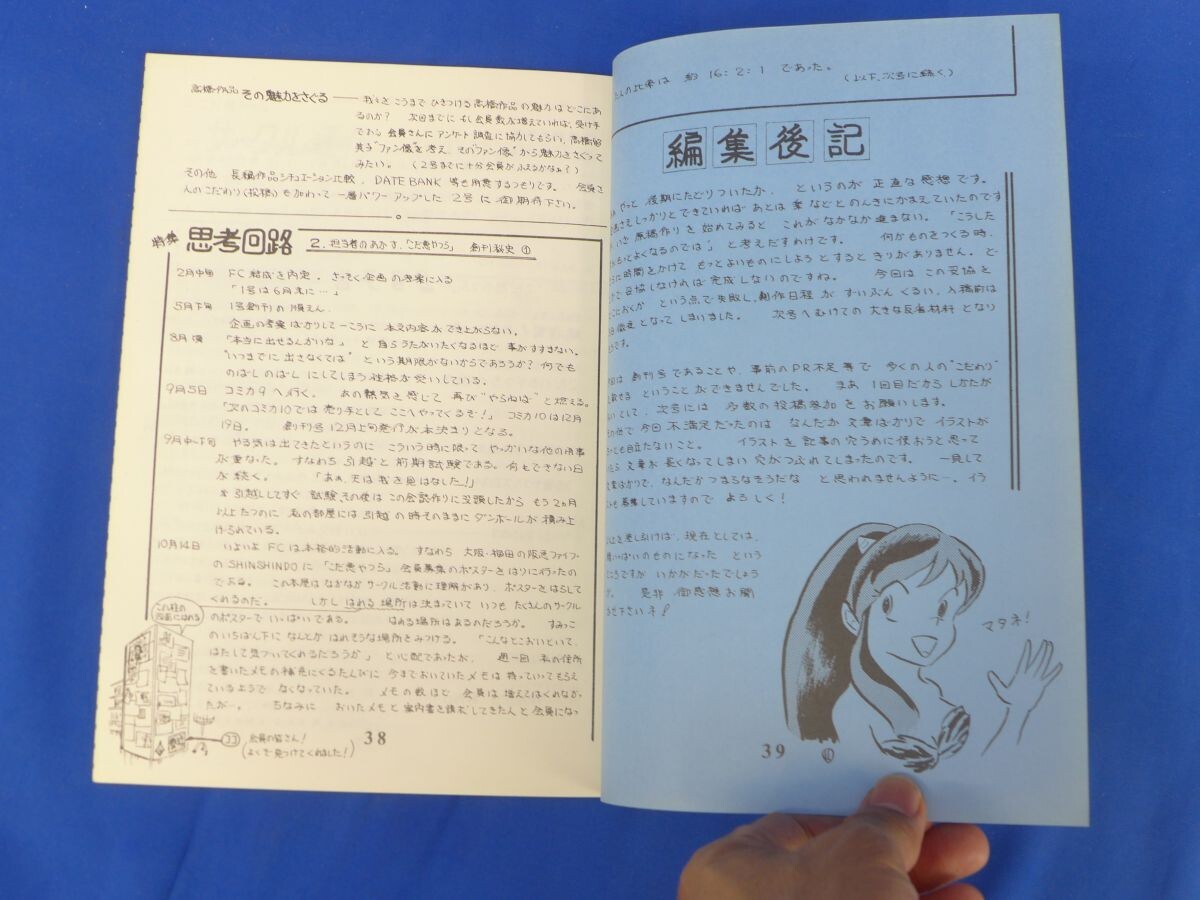 高橋作品 その魅力をさぐる ―― 我々を こうまで ひきつける 高橋作品の魅力はどこにあ
るのか? 次回までに もし会員数が増えていれば、受け手
である 会員さんに アンケート調査に協力してもらい、高橋留
美子"ファン像"を考え、その"ファン像"から魅力をさぐって
みたい。 (2号までに十分会員がふえるかなぁ?)
その他 長編作品シチュエーション比較、DATE BANK 等も用意するつもりです。 会員さ
んのこだわり(投稿)も加わって 一層パワーアップした 2号に 御期待下さい。
特集 思考回路 2. 担当者のあかす、「こだ悪やつら」 創刊秘史①
2月中旬 FC結成を内定。さっそく企画の考案に入る
「1号は6月末に…」
5月下旬 1号創刊の順えん
企画の考案ばかりして一こうに 本文内容ができ上がらない。
8月頃 「本当に出せるんかいな」 と 自らうたがいたくなるほど 事がすすまない。
"いつまでに 出さなくては" という期限がないからであろうか? 何でも
のばしのばしにしてしまう性格が災いしている。
9月5日 コミカ9へ行く。 あの熱気を感じて 再び"やらねば"と燃える。
「次のコミカ10では売り手として ここへやってくるぞ!」 コミカ10は12月
19日。 創刊号12月上旬発行が本決まりとなる。
9月中〜下旬 やる気は出てきたというのに こういう時に限って やっかいな他の用事
が重なった。 すなわち 引越と前期試験である。何もできない日
が続く。 「あぁ、天は我を見はなした…!」
※引越ししてすぐ 試験 その後は この会誌作りに没頭したから もう2ヵ月
以上たつのに 私の部屋には 引越の時そのままに ダンボールが積み上
げられている。
10月14日 いよいよFCは本格的活動に入る。 すなわち 大阪・梅田の阪急ファイブ
のSHINSHINDOに「こだ悪やつら」会員募集のポスターをはりに行ったの
である。 この本屋はなかなかサークル活動に理解があり、ポスターをはらして
くれるのだ。 しかしはれる場所は決まっていて いつも たくさんのサークル
のポスターでいっぱいである。 はれる場所はあるのだろうか。 すみっこ
のいちばん下に なんとか はれそうな場所をみつける。 「こんなとこおいといて、
はたして気づいてくれるだろうか」 と心配であったが、 週一回 私の住所
を書いたメモの補充にくるたんびに 今までおいていたメモは 持っていってもらえ
ているようで なくなっていた。 メモの数ほど 会員は増えてはくれなか
ったが…。 ちなみに おいたメモと案内書を請求してきた人と会員になっ
これ程の四面にはれる
ココ 会員の皆さん!
(よくぞ見つけてくれました!)
38
た人の比率は 約16:2:1 であった。
(以下、次号に続く)
編集後記
やっと 後期にたどりついたか。 というのが 正直な感想です。
さえしっかりとできていれば あとは 楽などとのんきにかまえていたのです
いざ 原稿作りを始めてみると これがなかなか進まない。 「こうした
がもっとよくなるのでは」 と考えだすわけです。 何かものをつくる時、
に時間をかけて もっとよいものにしようとすると きりがありません。 ど
で妥協しなければ完成しないのですね。 今回は この妥協を
ことおくか という点で失敗し、創作日程が ずいぶんくるい、入稿前は
徹夜となってしまいました。 次号へむけての 大きな反省材料 となり
そうです。
回は 創刊号であることや、事前のPR不足等で 多くの人の"こだわり"
を載せる ということができませんでした。 まあ 1回目だから しかたが
ないとして、次号には 多数の投稿参加をお願いします。
その他で 今回 不満足だったのは なんだか 文章ばかりで イラストが
っとも目立たないこと。 イラストを 記事の穴うめに使おうと思って
たら 文章が長くなってしまい 穴がつぶれてしまったのです。 一見して
文章ばかりで、なんだかつまらなそうだな と思われませんように…。イラ
ストも募集していますので よろしく!
を差し引けば、現在としては、
精いっぱいのものになった という
ころですが いかがだったでしょう
か。 是非 御感想お聞
かせ下さいネ!
マタネ!
39